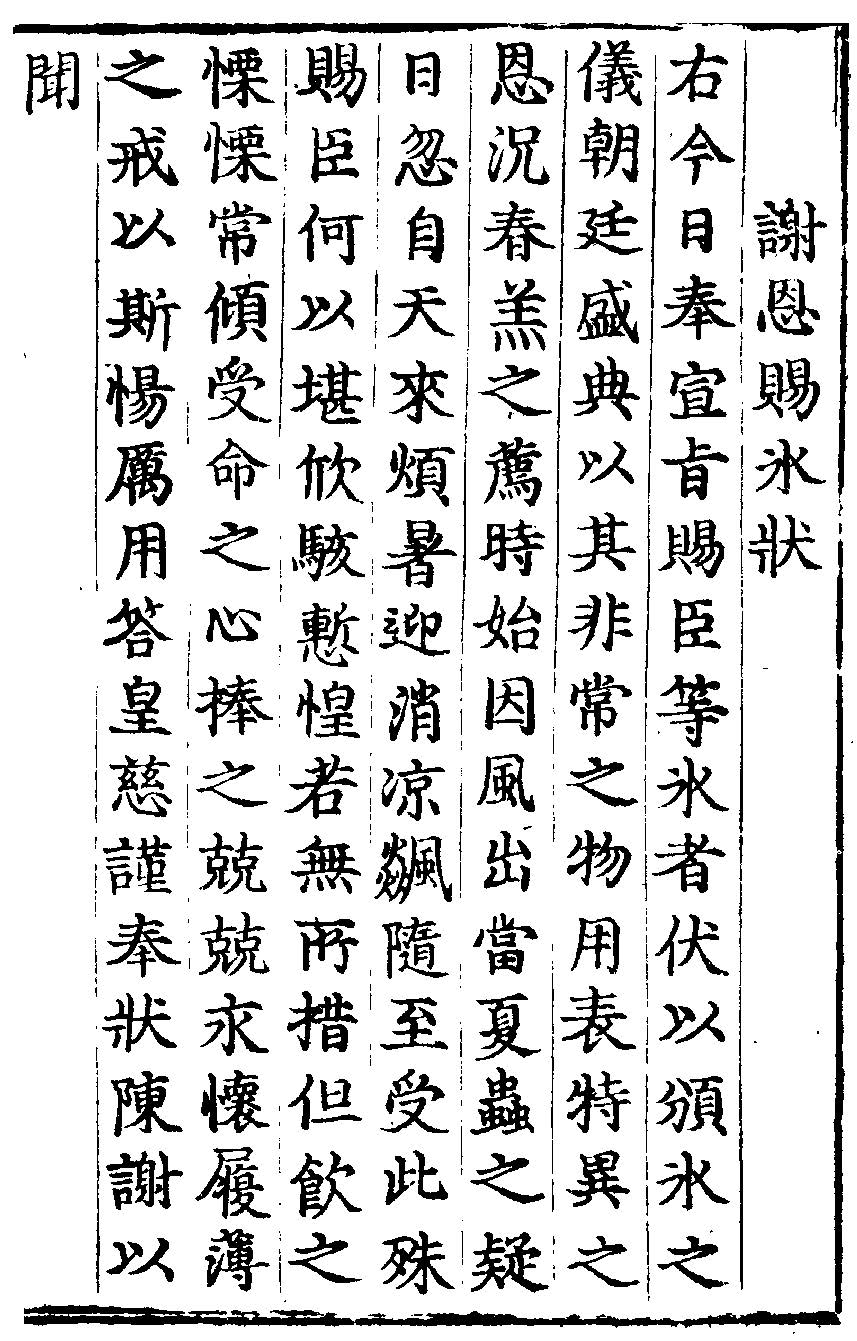 謝恩賜氷狀
右今日奉宣㫖賜臣等氷者伏以頒氷之
儀朝廷盛典以其非常之物用表特異之
恩況春羔之薦時始因風出當夏蟲之疑
日忽自天來煩暑迎消凉飈隨至受此殊
賜臣何以堪欣駭慙惶若無所措但飲之
慄慄常傾受命之心捧之兢兢永懷履薄
之戒以斯惕厲用答皇慈謹奉狀陳謝以
聞